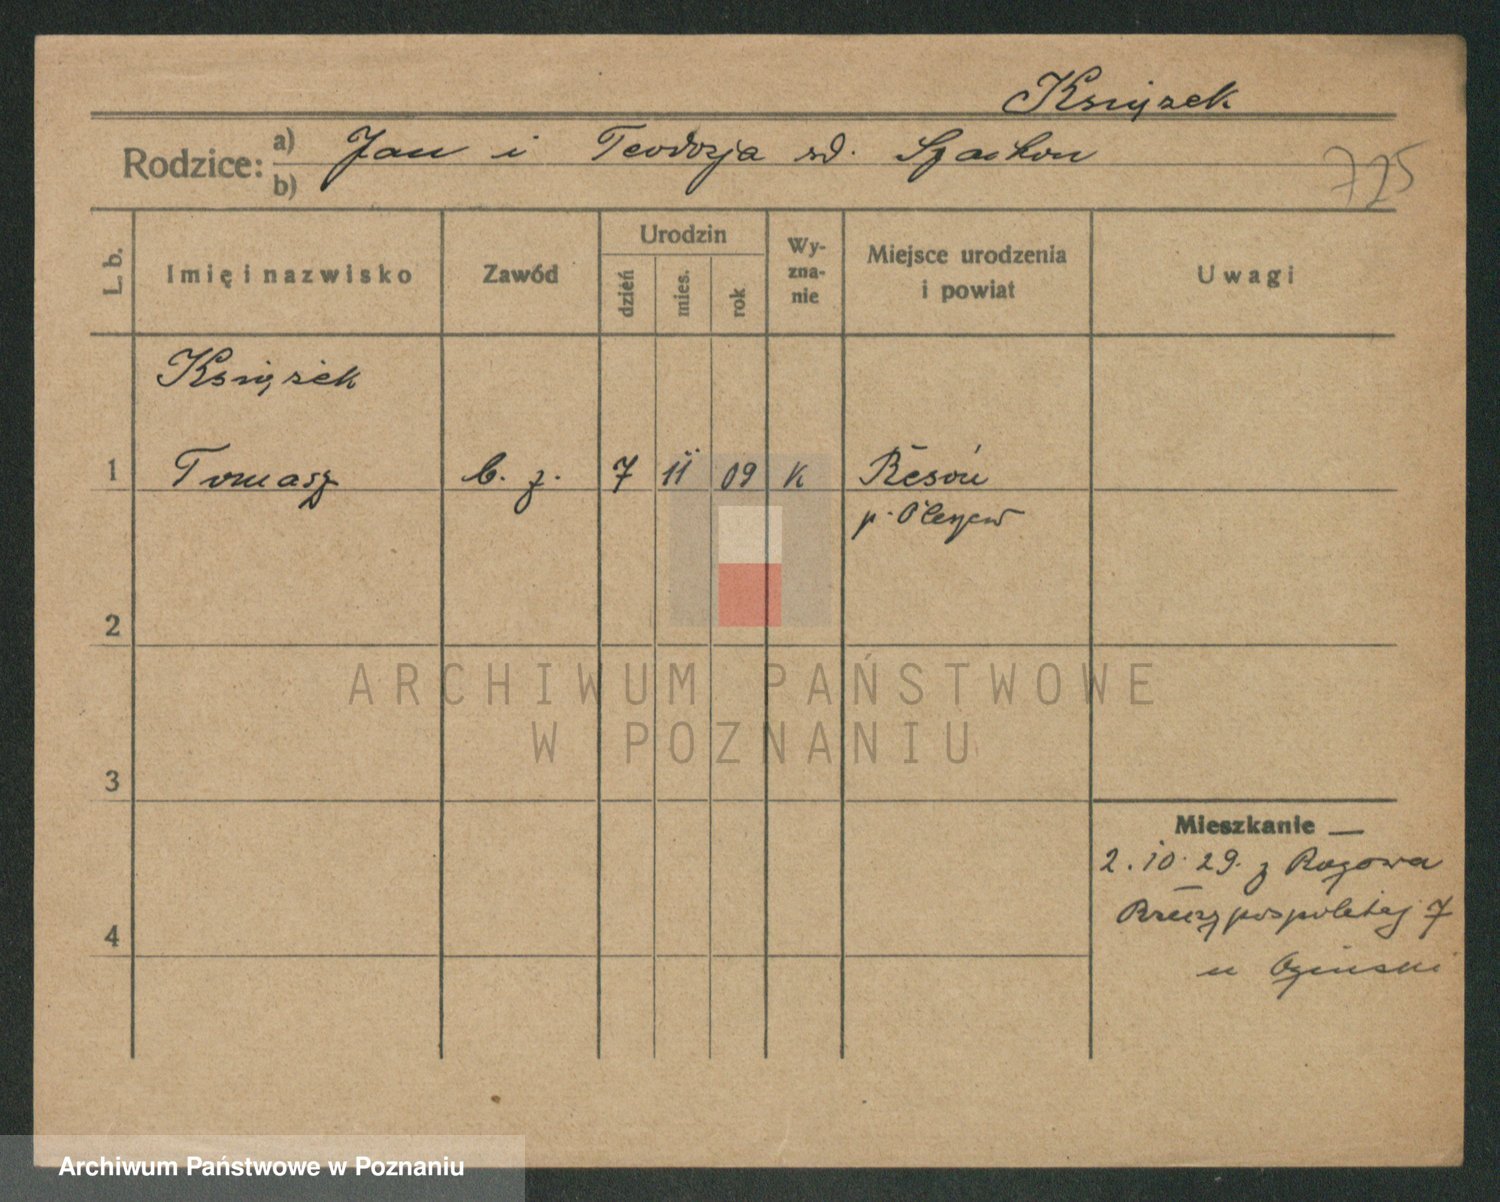 Książek
Rodzice: a) Jan i Teodozja
b)
725
L. b.
Imię i nazwisko
Zawód
Urodzin
dzień
mies.
rok
Wy-
zna-
nie
Miejsce urodzenia
i powiat
Uwagi
Książek
1 Tomasz b. z. 7 11 09 K
2
3
4
Mieszkanie
2.10.29. z Rogowa
Rzeczypospolitej 7
u
ARCHIWUM PAŃSTWOWE
W POZNANIU
Archiwum Państwowe w Poznaniu